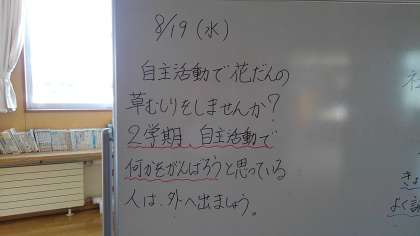 8/19(水)
自主活動で花だんの
草むしりをしませんか?
2学期、自主活動で
何かをがんばろうと思っている
人は、外へ出ましょう。